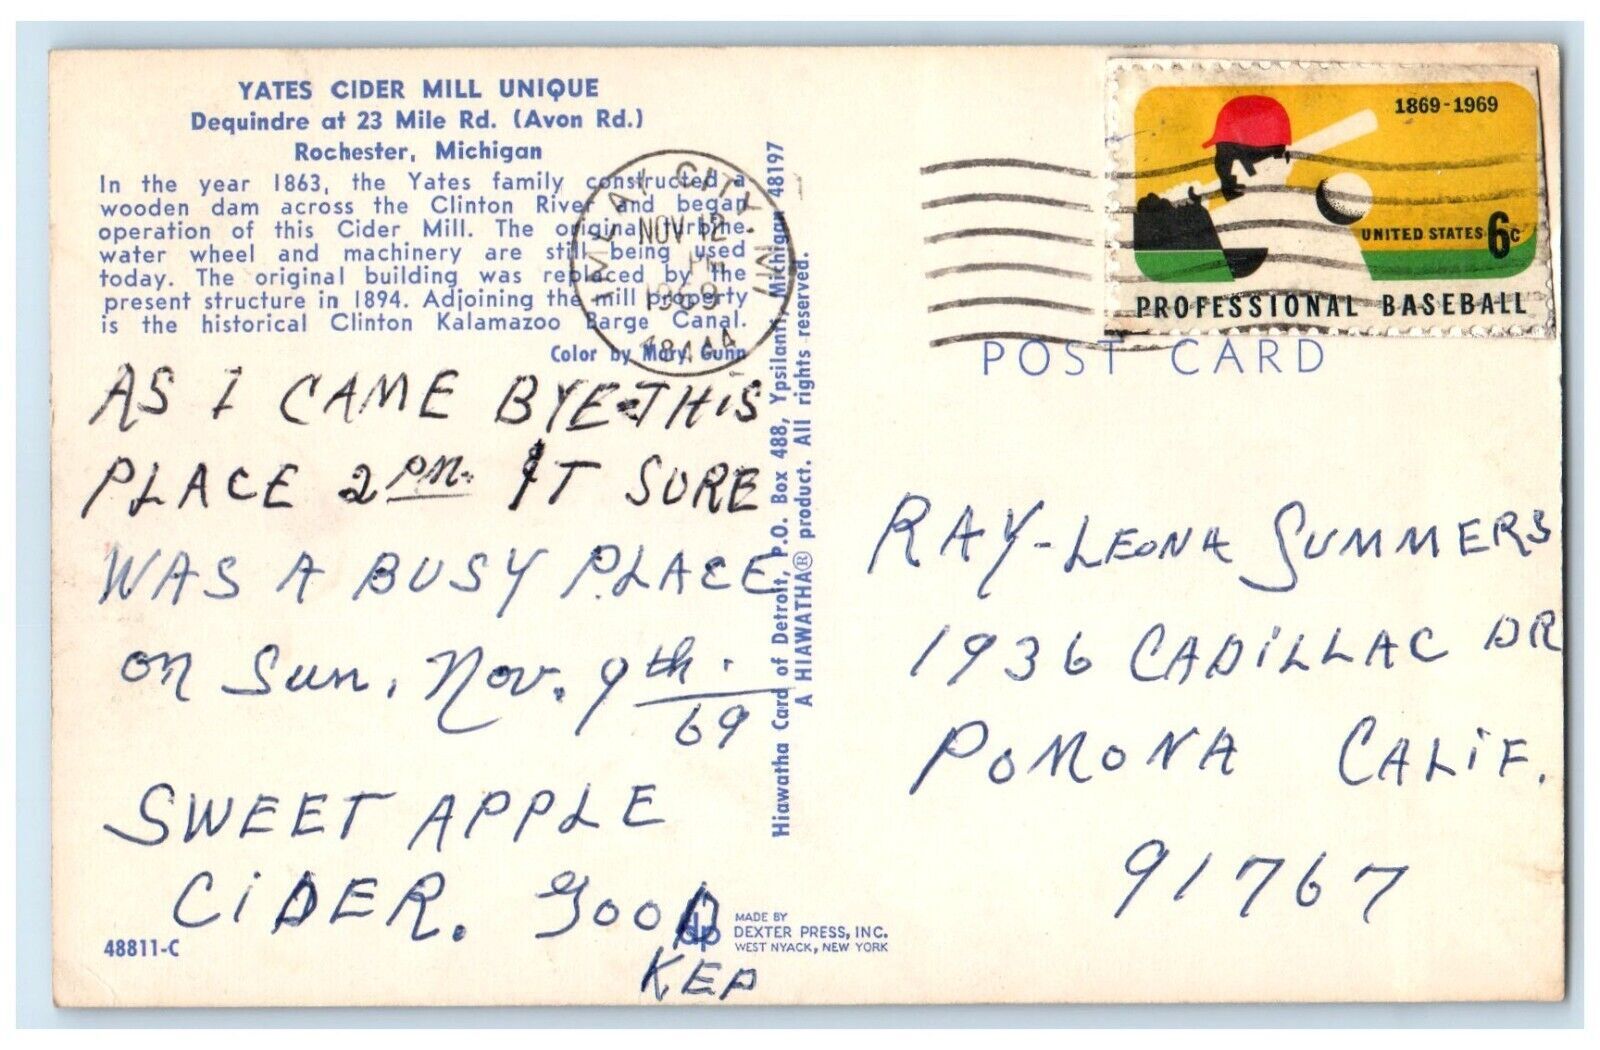 YATES CIDER MILL UNIQUE
Dequindre at 23 Mile Rd. (Avon Rd.)
Rochester, Michigan
In the year 1863, the Yates family constructed a
wooden dam across the Clinton River and began
operation of this Cider Mill. The original turbine
water wheel and machinery are still being used
today. The original building was replaced by the
present structure in 1894. Adjoining the mill property
is the historical Clinton Kalamazoo Barge Canal.
Color by Mary Gunn
AS I CAME BYE-THIS
PLACE 2 PM. IT SURE
WAS A BUSY PLACE
ON Sun, Nov. 9th.
69
SWEET APPLE
CIDER. GOOD
KEP
48811-C
CITY
NOV 12
1969
MI
Hiawatha Card of Detroit, P.O. Box 488, Ypsilanti, Michigan 48197
A HIAWATHA® product. All rights reserved.
dp
MADE BY
DEXTER PRESS, INC.
WEST NYACK, NEW YORK
1869-1969
UNITED STATES 6c
PROFESSIONAL BASEBALL
POST CARD
RAY-LEONA SUMMERS
1936 CADILLAC DR
POMONA CALIF.
91767